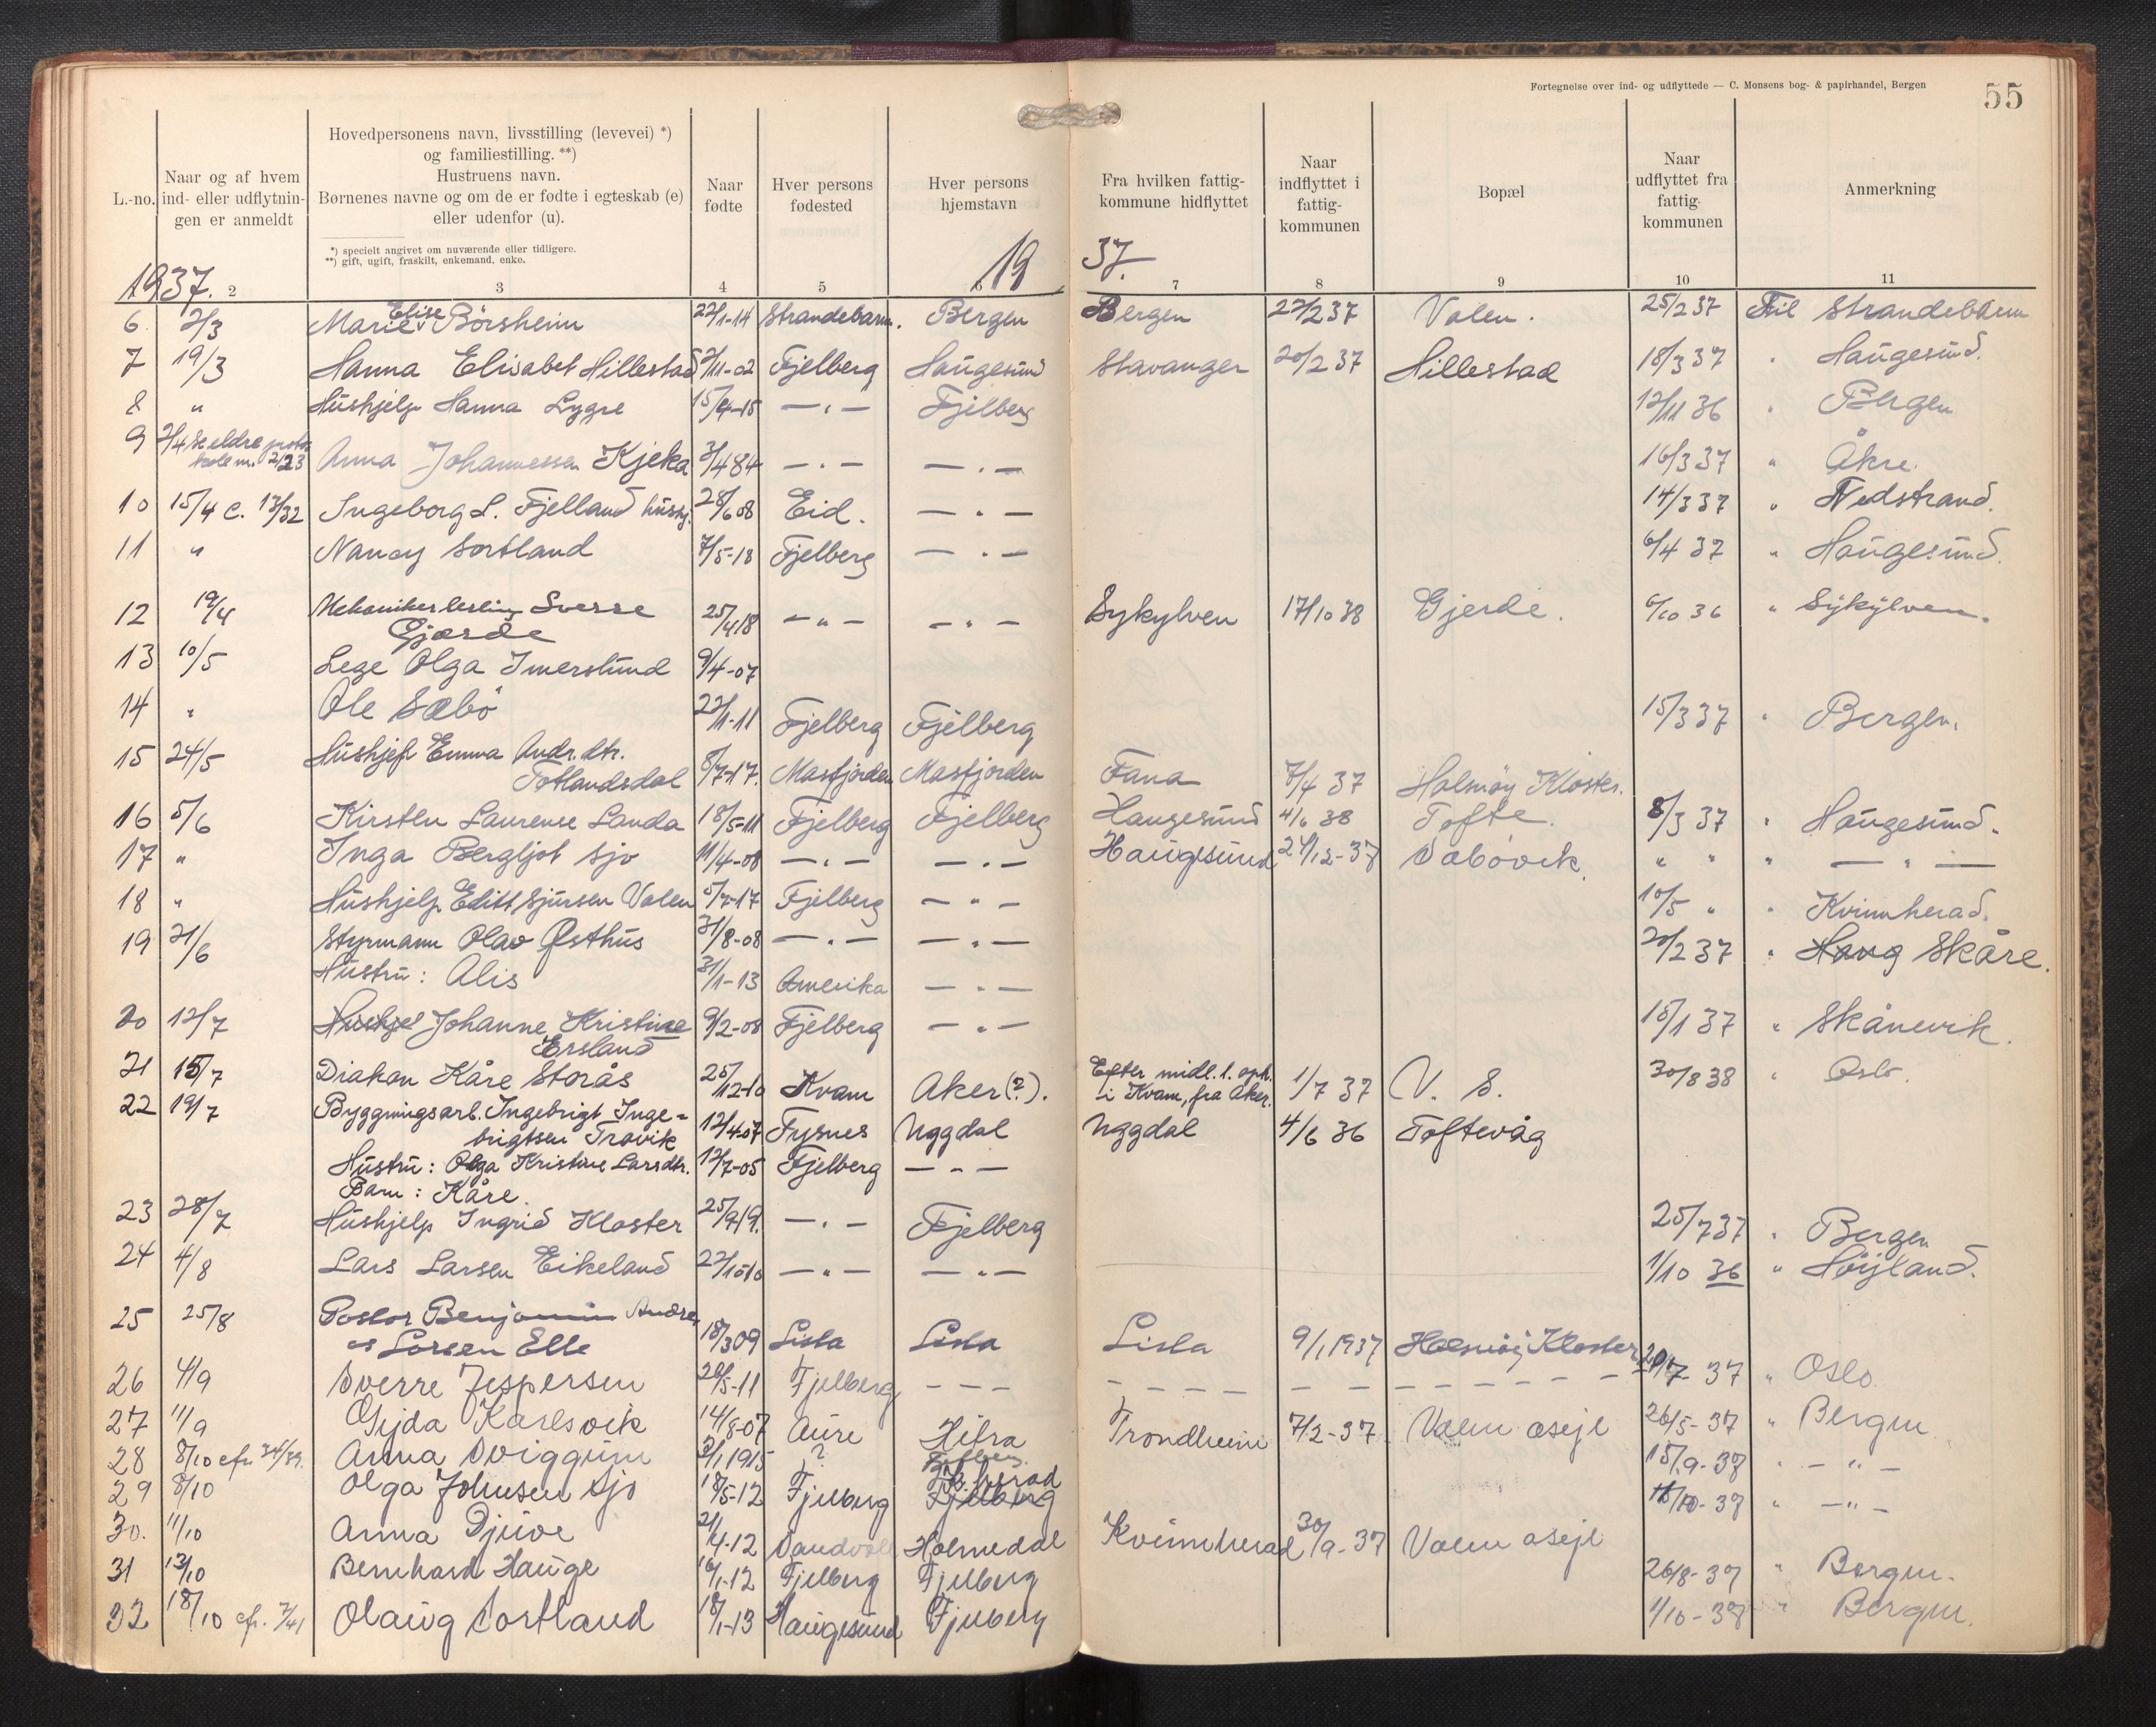 Fortegnelse over ind- og udflyttede — C. Monsens bog- & papirhandel, Bergen
55
L.-no.
Naar og af hvem ind- eller udflytningen er anmeldt
Hovedpersonens navn, livsstilling (levevei) *) og familiestilling. **)
Hustruens navn.
Børnenes navne og om de er fødte i egteskab (e) eller udenfor (u).
*) specielt angivet om nuværende eller tidligere.
**) gift, ugift, fraskilt, enkemand, enke.
Naar fødte
Hver persons fødested
Hver persons hjemstavn
Fra hvilken fattigkommune hidflyttet
Naar indflyttet i fattigkommunen
Bopæl
Naar udflyttet fra fattigkommunen
Anmerkning
1937. 2 3 4 5 6 19 37. 7 8 9 10 11
6 2/3 Marie Elise Börsheim 22/1-14 Strandebarm. Bergen Bergen 22/2 37 Valen. 25/2 37 Til Strandebarm
7 19/3 Hanna Elisabet Hillestad 2/11-02 Fjelberg Haugesund Stavanger 20/2 37 Hillestad 18/3 37 " Haugesund.
8 " Hushjelp Hanna Lygre 15/4-15 — " — Fjelberg 12/11 36 " Bergen
9 2/4 Se eldre protokoll nr. 2/23 Anna Johannessen Kjeka 3/4 84 — " — — " — 16/3 37 " Åkre.
10 15/4 c. 13/32 Ingeborg L. Fjelland hushj. 28/6 08 Eid. — " — 14/3 37 " Nedstrand.
11 " Nancy Sortland 7/5-18 Fjelberg — " — 6/4 37 " Haugesund.
12 19/4 Mekanikerlerling Sverre Gjærde 25/4 18 — " — — " — Sykylven 17/10 38 Gjerde. 6/10 36 " Sykylven.
13 10/5 Lege Olga Imerslund 9/4-07
14 " Ole Sæbö 22/1-11 Fjelberg Fjelberg 15/3 37 " Bergen.
15 24/5 Hushjelp Emma Andr. dtr. Totlandsdal 8/7-17. Masfjorden Masfjorden Fana 7/4 37 Halsnöy Kloster.
16 5/6 Kirsten Laurense Landa 18/5-11 Fjelberg Fjelberg Haugesund 4/6 38 Tofte. 8/3 37 " Haugesund.
17 " Inga Bergljot Sjo 11/4-08 — " — — " — Haugesund 21/12-37 Sæbövik. " " " — " —
18 " Hushjelp Editt Sjursen Valen 5/7-17 Fjelberg — " — 10/5 " " Kvinnherad.
19 21/6 Styrmann Olav Østhus 31/8-08 — " — — " — 20/2 37 " Haug Skåre.
Hustru: Alis 31/1-13 Amerika — " —
20 12/7 Hushjel Johanne Kristine Ersland 9/2-08 Fjelberg — " — 15/1 37 " Skånevik.
21 15/7 Diakon Kåre Storås 25/12-10 Kvam Aker (?). Efter midl. l. oph. i Kvam, fra Aker. 1/7 37 V. S. 30/8 38 " Oslo.
22 19/7 Byggningsarb. Ingebrigt Ingebrigtsen Travik 12/4-07 Tysnes Uggdal Uggdal 4/6 36 Toftevåg
Hustru: Olga Kristine Larsdtr. 12/7-05 Fjelberg — " —
Barn: Kåre.
23 28/7 Hushjelp Ingrid Kloster 25/9 19. — " — Fjelberg 25/7 37 " Bergen
24 4/8 Lars Larsen Eikeland 27/10-10 — " — — " — 1/10 36 " Höyland.
25 25/8 Pastor Benjamin Andreas Larsen Elle 18/3 09 Lista Lista Lista 9/1 1937 Halsnöy Kloster
26 4/9 Sverre Jespersen 20/5-11 Fjelberg - - - 37 " Oslo
27 11/9 Karlsvik 14/8-07 Aure Hitra Trondheim 7/2-37 Valen asyl 26/5-37 " Bergen
28 8/10 cfr. 24/39. Anna Sviggum 2/1 1915 ? 15/9-37 " - " -
29 8/10 Olga Johnsen Sjo 18/5-12 Fjelberg Fjelberg 16/10-37 " - " -
30. 11/10 Anna Djuve 21/4-12 Holmedal Kvinnherad 30/9-37 Valen asyl
31 13/10 Bernhard Hauge 16/1-12 Fjelberg Fjelberg 26/8-37 " Bergen.
32 18/10 cfr. 7/41 Olaug Sortland 18/1-13 Haugesund Fjelberg 1/10-37 " Bergen.